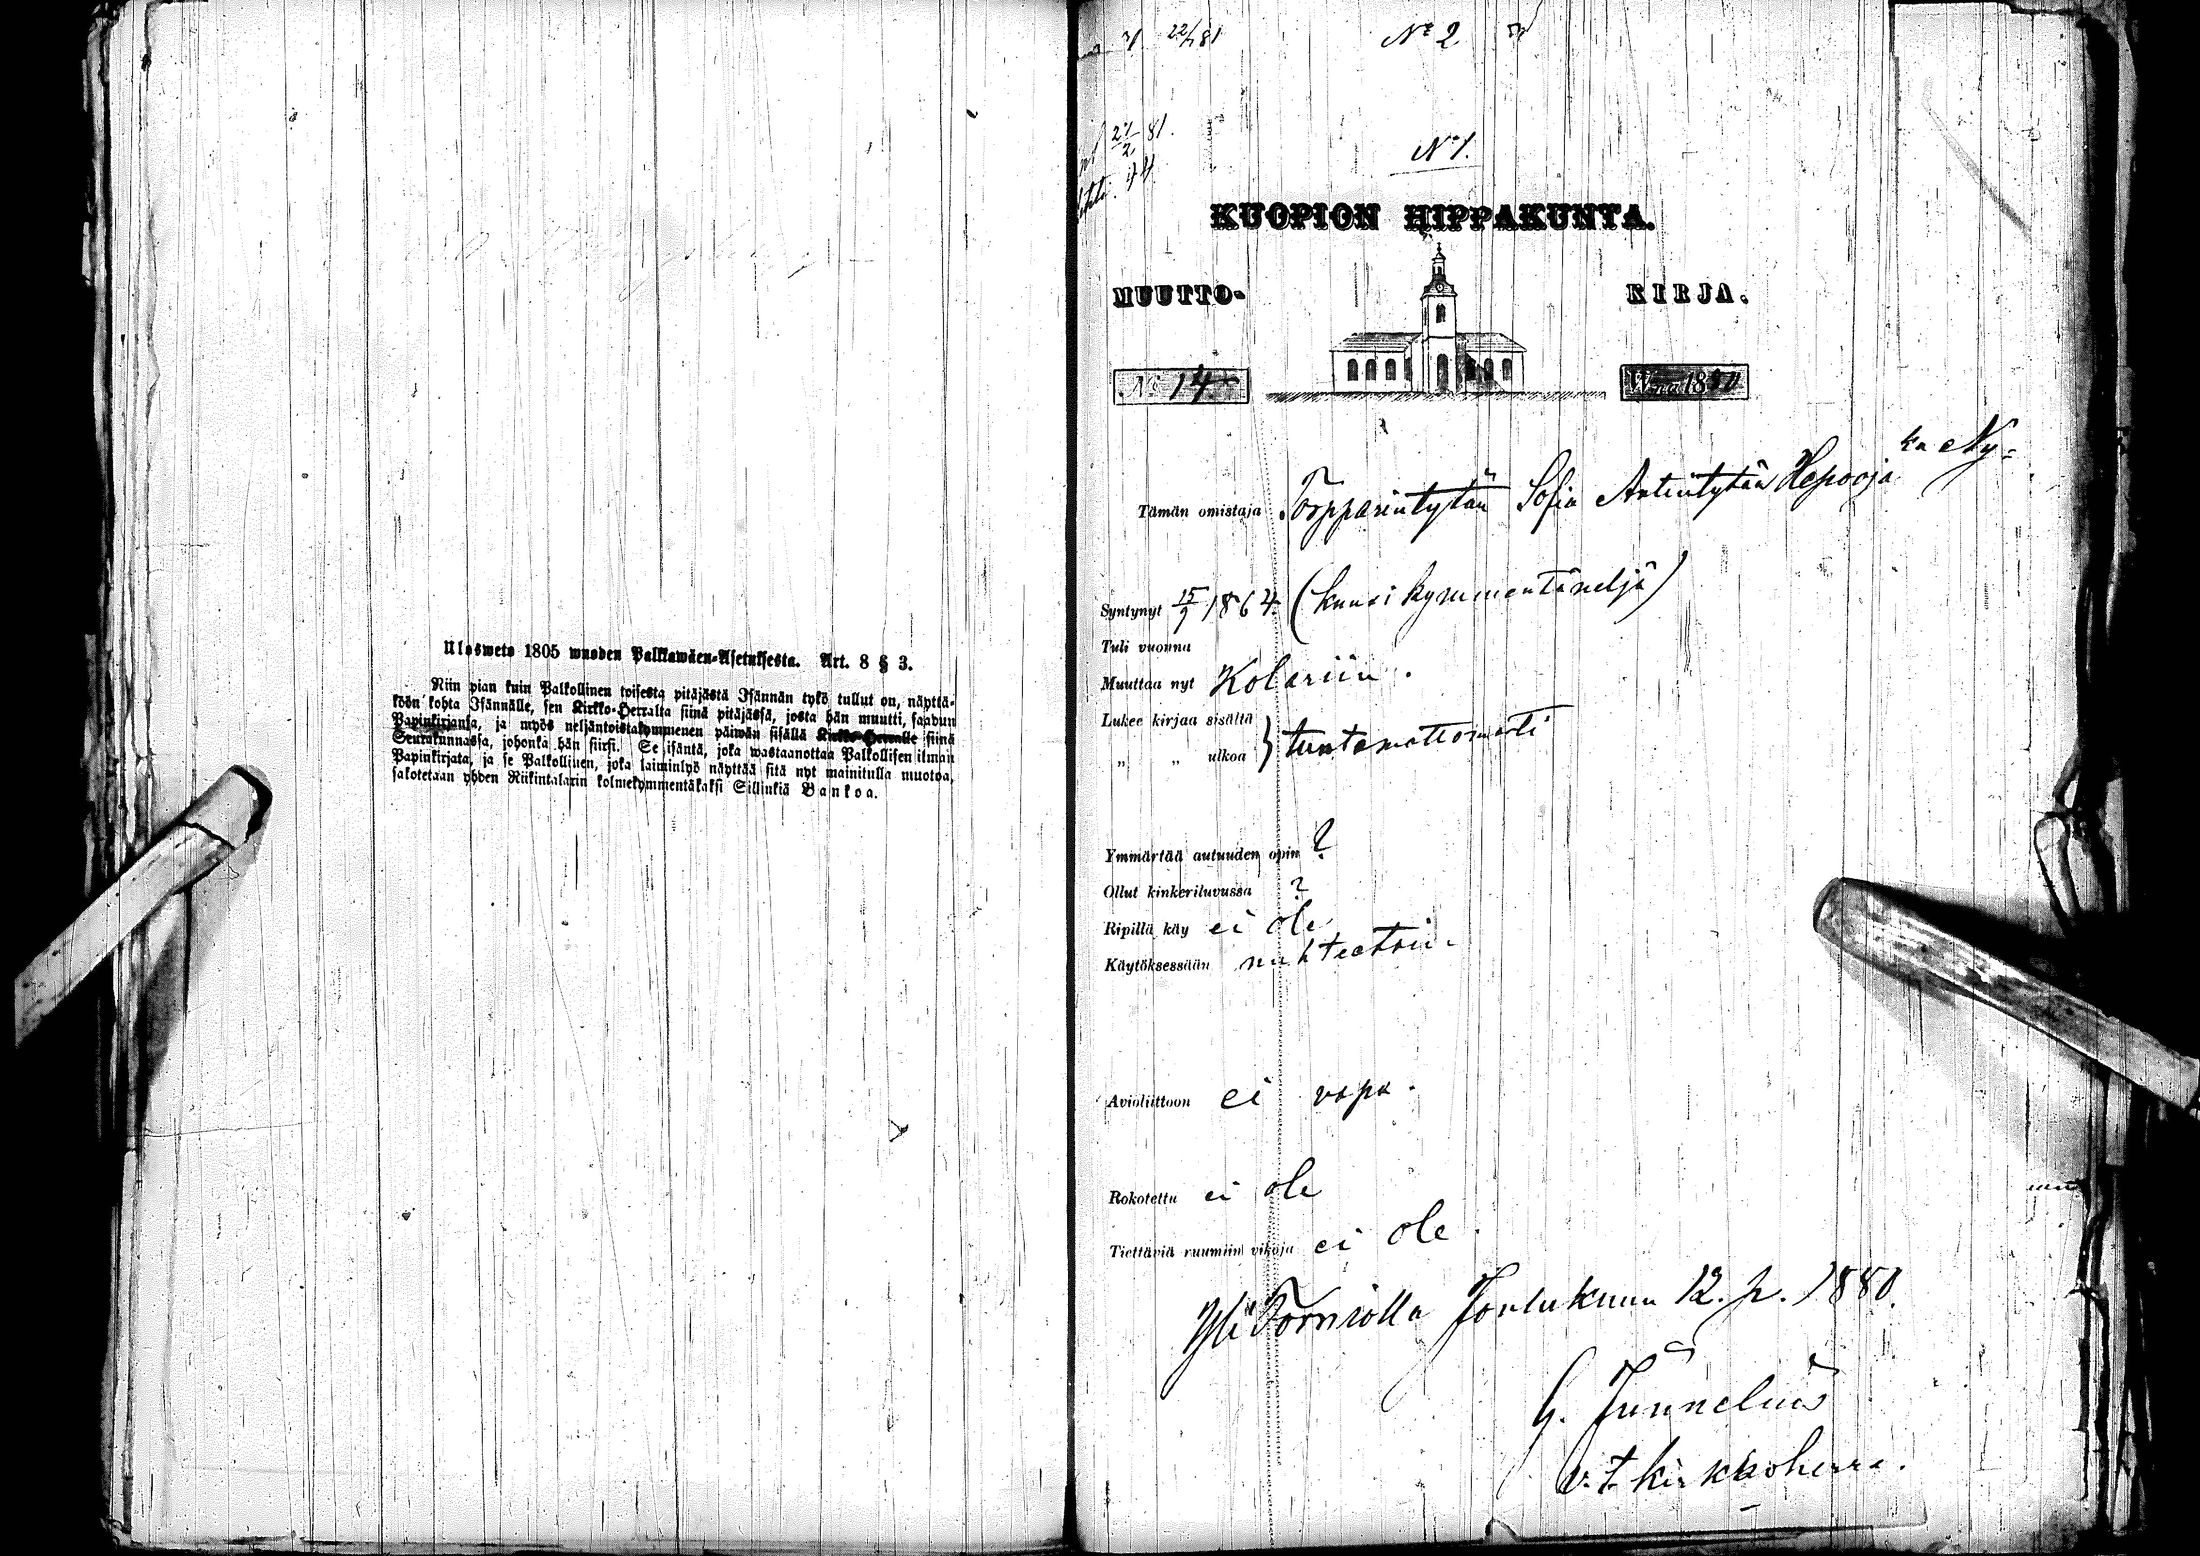 Ulosweto 1805 wuoden Palkkawäen-Asetuksesta. Art. 8 § 3.
Niin pian kuin Palkollinen toisesta pitäjästä Isännän tykö tullut on, näyttä-
köön kohta Isännälle, sen Kirkko-Herralta siinä pitäjässä, josta hän muutti, saadun
Papinkirjansa, ja myös neljäntoistakymmenen päiwän sisällä Kirkko-Herralle siinä
Seurakunnassa, johonka hän siirsi. Se isäntä, joka wastaanottaa Palkollisen ilman
Papinkirjata, ja se Palkollinen, joka laiminlyö näyttää sitä nyt mainitulla muotoa,
sakotetaan yhden Riikintalarin kolmekymmentäkaksi Sillinkiä Bankoa.
22/1 81
No 2
21/2 81.
44
No 1.
KUOPION HIPPAKUNTA.
MUUTTO- KIRJA.
No 14 W:na 1880
Tämän omistaja Torpparintytär Sofia Antintytär Heposoja
Syntynyt 15/9 1864 (kuusikymmentäneljä)
Tuli vuonna
Muuttaa nyt Kolariin.
Lukee kirjaa sisältä
„ „ ulkoa } tuntemattomasti
Ymmärtää autuuden opin ?
Ollut kinkeriluvussa ?
Ripillä käy ei ole
Käytöksessään nuhteetoin.
Avioliittoon ei vapa.
Rokotettu ei ole
Tiettäviä ruumiin vikoja ei ole.
Yli Torniolla Joulukuun 12. p. 1880.
v.t. kirkkoherra.